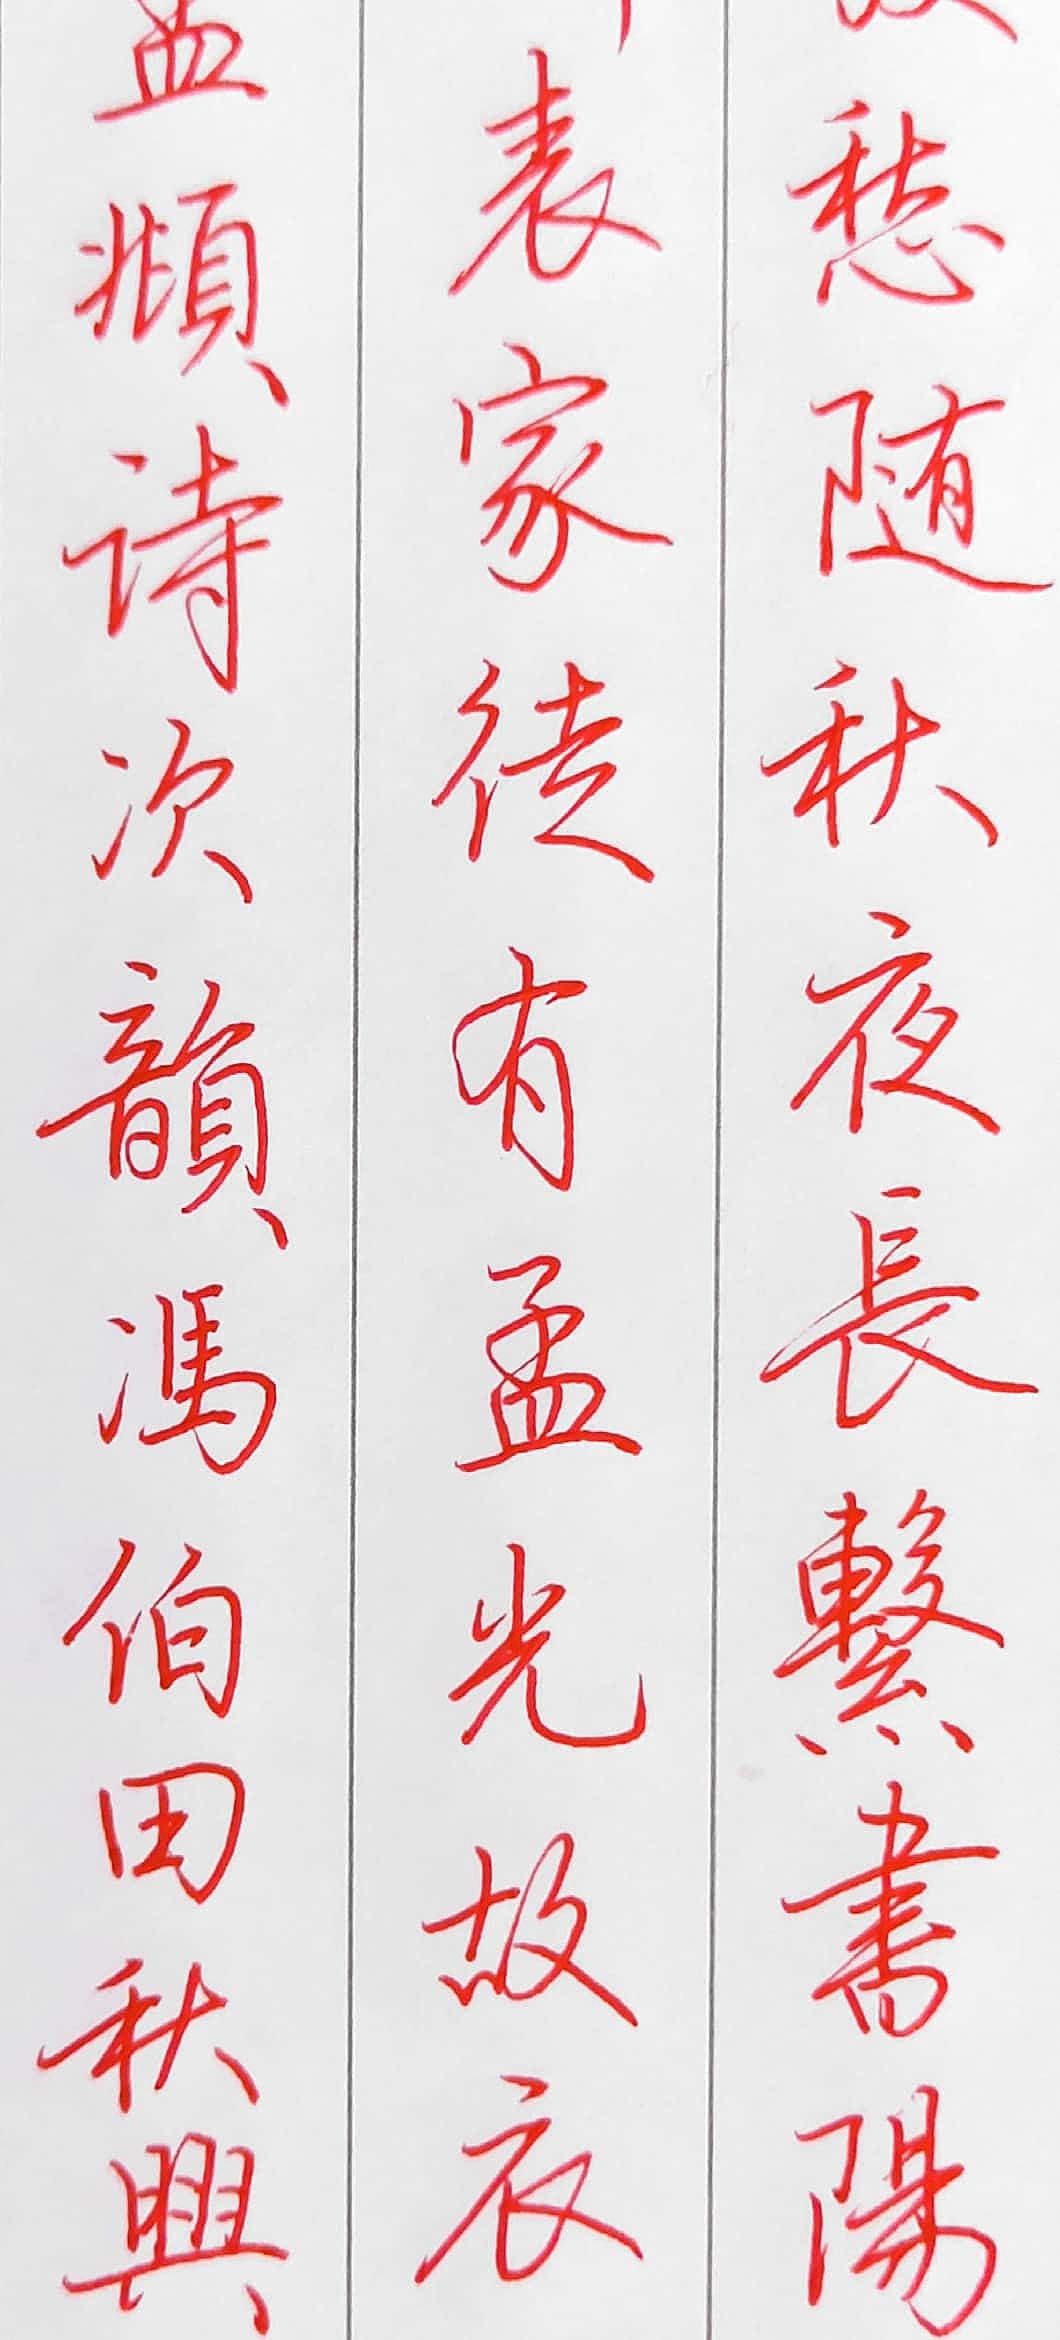 愁随秋夜長繫書陽
表家徒有孟光故衣
孟頫詩次韻馮伯田秋興